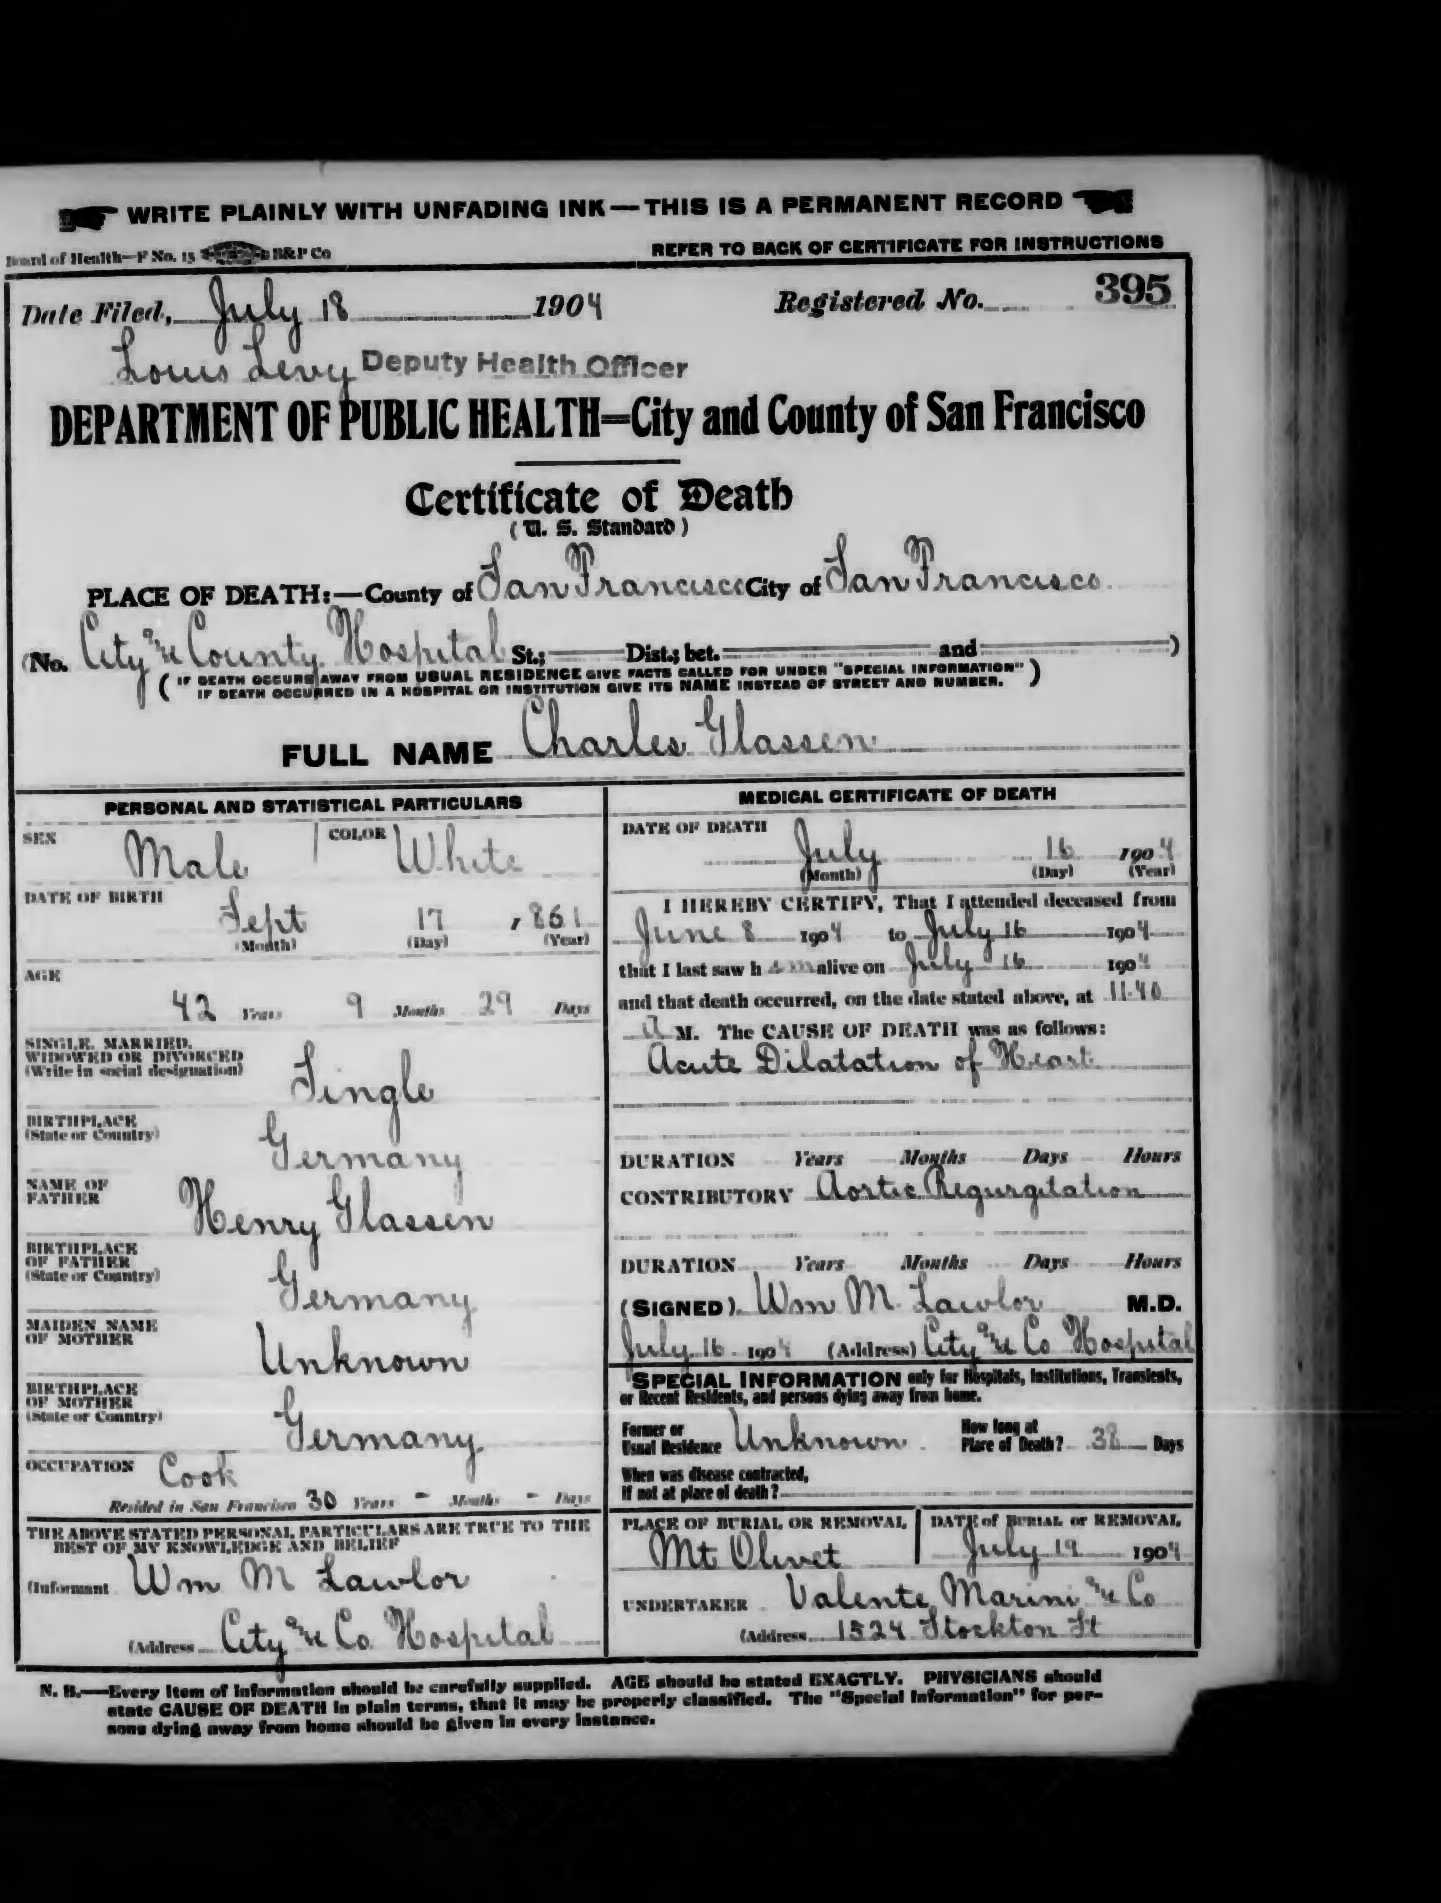 WRITE PLAINLY WITH UNFADING INK—THIS IS A PERMANENT RECORD
Board of Health—F No. 15 B&P Co
REFER TO BACK OF CERTIFICATE FOR INSTRUCTIONS
Date Filed, July 18 1904 Registered No. 395
Louis Levy Deputy Health Officer
DEPARTMENT OF PUBLIC HEALTH=City and County of San Francisco
Certificate of Death
(U. S. Standard)
PLACE OF DEATH:—County of San Francisco City of San Francisco
(No. City & County Hospital St.; Dist.; bet. and )
(IF DEATH OCCURS AWAY FROM USUAL RESIDENCE GIVE FACTS CALLED FOR UNDER "SPECIAL INFORMATION"
IF DEATH OCCURRED IN A HOSPITAL OR INSTITUTION GIVE ITS NAME INSTEAD OF STREET AND NUMBER.)
FULL NAME Charles Glassen
PERSONAL AND STATISTICAL PARTICULARS
SEX Male COLOR White
DATE OF BIRTH
Sept 17 , 861
(Month) (Day) (Year)
AGE
42 Years 9 Months 29 Days
SINGLE, MARRIED,
WIDOWED OR DIVORCED
(Write in social designation)
Single
BIRTHPLACE
(State or Country)
Germany
NAME OF
FATHER
Henry Glassen
BIRTHPLACE
OF FATHER
(State or Country)
Germany
MAIDEN NAME
OF MOTHER
Unknown
BIRTHPLACE
OF MOTHER
(State or Country)
Germany
OCCUPATION Cook
Resided in San Francisco 30 Years - Months - Days
THE ABOVE STATED PERSONAL PARTICULARS ARE TRUE TO THE
BEST OF MY KNOWLEDGE AND BELIEF
(Informant Wm M Lawlor
(Address City & Co Hospital
MEDICAL CERTIFICATE OF DEATH
DATE OF DEATH
July 16 1904
(Month) (Day) (Year)
I HEREBY CERTIFY, That I attended deceased from
June 8 1904 to July 16 1904
that I last saw h im alive on July 16 1904
and that death occurred, on the date stated above, at 11.40
A M. The CAUSE OF DEATH was as follows:
Acute Dilatation of Heart
DURATION Years Months Days Hours
CONTRIBUTORY Aortic Regurgitation
DURATION Years Months Days Hours
(SIGNED) Wm M. Lawlor M.D.
July 16 1904 (Address) City & Co Hospital
SPECIAL INFORMATION only for Hospitals, Institutions, Transients,
or Recent Residents, and persons dying away from home.
Former or
Usual Residence Unknown
How long at
Place of Death? 38 Days
When was disease contracted,
If not at place of death?
PLACE OF BURIAL OR REMOVAL
Mt Olivet
DATE of BURIAL or REMOVAL
July 19 1904
UNDERTAKER Valente Marini & Co
(Address 1524 Stockton St
N. B.—Every item of information should be carefully supplied. AGE should be stated EXACTLY. PHYSICIANS should
state CAUSE OF DEATH in plain terms, that it may be properly classified. The "Special Information" for per-
sons dying away from home should be given in every instance.